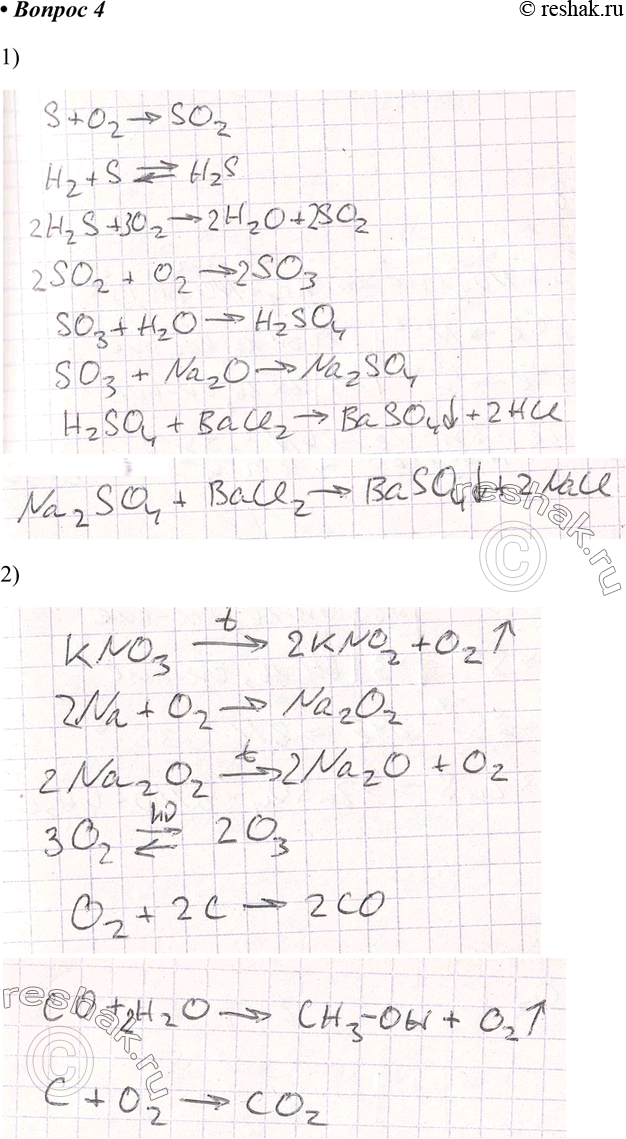 • Вопрос 4
© reshak.ru
1)
S + O₂ → SO₂
H₂ + S ⇄ H₂S
2H₂S + 3O₂ → 2H₂O + 2SO₂
2SO₂ + O₂ → 2SO₃
SO₃ + H₂O → H₂SO₄
SO₃ + Na₂O → Na₂SO₄
H₂SO₄ + BaCl₂ → BaSO₄↓ + 2HCl
Na₂SO₄ + BaCl₂ → BaSO₄↓ + 2NaCl
reshak.ru
©
2)
KNO₃ →ᵗ 2KNO₂ + O₂↑
2Na + O₂ → Na₂O₂
2Na₂O₂ →ᵗ 2Na₂O + O₂
3O₂ ⇄ʰᵛ 2O₃
O₂ + 2C → 2CO
CO + 2H₂O → CH₃-OH + O₂↑
C + O₂ → CO₂
reshak.ru
©